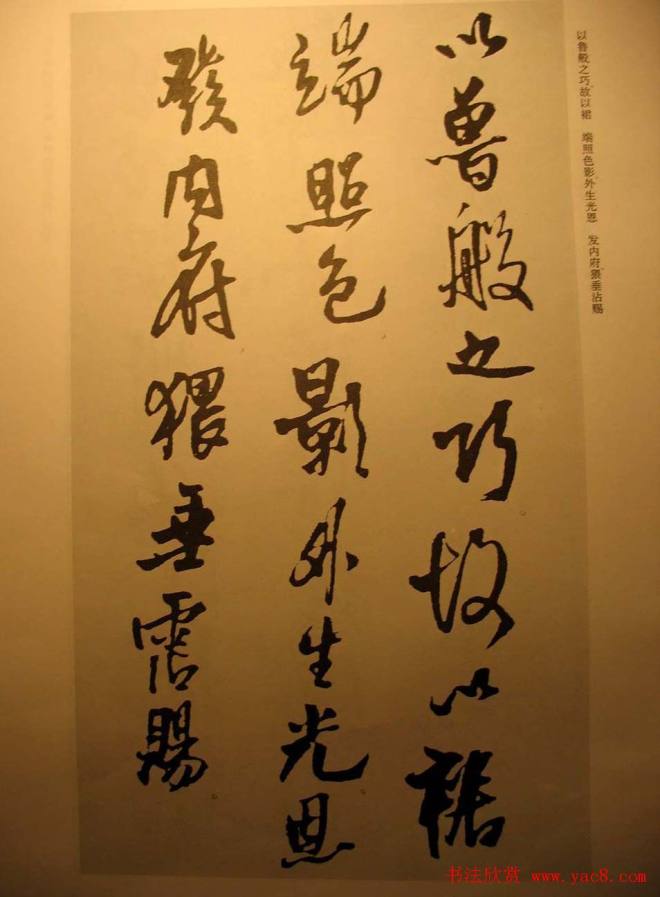 以鲁般之巧故以裙 端照色影外生光恩 发内府猥垂沾赐
以魯般之巧故以裾
端照色影外生光恩
發内府猥垂霑賜
书法欣赏 www.yac8.com